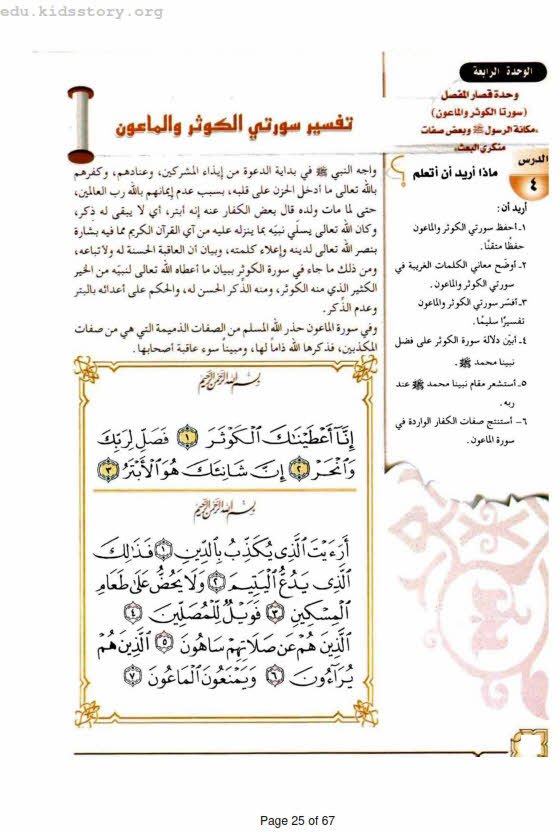 edu.kidsstory.org
الوحدة الرابعة
وحدة قصار المفصل
(سورتا الكوثر والماعون)
«مكانة الرسول ﷺ وبعض صفات
منكري البعث»
الدرس
٤
ماذا أريد أن أتعلم ؟
أريد أن:
١- أحفظ سورتي الكوثر والماعون
حفظًا متقنًا.
٢- أوضح معاني الكلمات الغريبة في
سورتي الكوثر والماعون.
٣- أفسّر سورتي الكوثر والماعون
تفسيرًا سليمًا.
٤- أبيّن دلالة سورة الكوثر على فضل
نبينا محمد ﷺ.
٥- أستشعر مقام نبينا محمد ﷺ عند
ربه.
٦- أستنتج صفات الكفار الواردة في
سورة الماعون.
تفسير سورتي الكوثر والماعون
واجه النبي ﷺ في بداية الدعوة من إيذاء المشركين، وعنادهم، وكفرهم
بالله تعالى ما أدخل الحزن على قلبه، بسبب عدم إيمانهم بالله رب العالمين،
حتى لما مات ولده قال بعض الكفار عنه إنه أبتر، أي لا يبقى له ذكر،
وكان الله تعالى يسلّي نبيّه بما ينزله عليه من آي القرآن الكريم مما فيه بشارة
بنصر الله تعالى لدينه وإعلاء كلمته، وبيان أن العاقبة الحسنة له ولأتباعه،
ومن ذلك ما جاء في سورة الكوثر ببيان ما أعطاه الله تعالى لنبيّه من الخير
الكثير الذي منه الكوثر، ومنه الذّكر الحسن له، والحكم على أعدائه بالبتر
وعدم الذّكر.
وفي سورة الماعون حذر الله المسلم من الصفات الذميمة التي هي من صفات
المكذبين، فذكرها الله ذاماً لها، ومبيناً سوء عاقبة أصحابها.
بسم الله الرحمن الرحيم
إِنَّا أَعْطَيْنَاكَ الْكَوْثَرَ ١ فَصَلِّ لِرَبِّكَ
وَانْحَرْ ٢ إِنَّ شَانِئَكَ هُوَ الْأَبْتَرُ ٣
بسم الله الرحمن الرحيم
أَرَءَيْتَ الَّذِي يُكَذِّبُ بِالدِّينِ ١ فَذَٰلِكَ
الَّذِي يَدُعُّ الْيَتِيمَ ٢ وَلَا يَحُضُّ عَلَىٰ طَعَامِ
الْمِسْكِينِ ٣ فَوَيْلٌ لِلْمُصَلِّينَ ٤
الَّذِينَ هُمْ عَن صَلَاتِهِمْ سَاهُونَ ٥ الَّذِينَ هُمْ
يُرَاءُونَ ٦ وَيَمْنَعُونَ الْمَاعُونَ ٧
Page 25 of 67